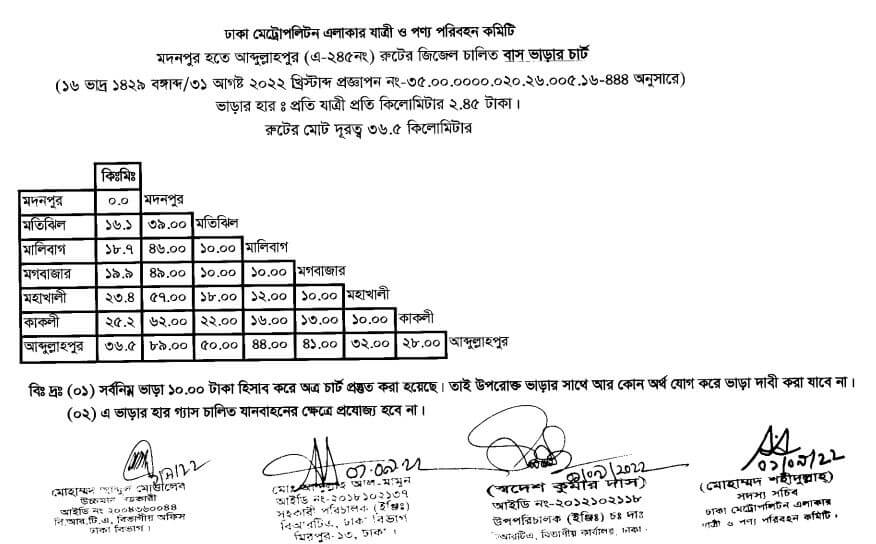 ঢাকা মেট্রোপলিটন এলাকার যাত্রী ও পণ্য পরিবহন কমিটি
মদনপুর হতে আব্দুল্লাহপুর (এ-২৪৫নং) রুটের জিজেল চালিত বাস ভাড়ার চার্ট
(১৬ ভাদ্র ১৪২৯ বঙ্গাব্দ/৩১ আগষ্ট ২০২২ খ্রিস্টাব্দ প্রজ্ঞাপন নং-৩৫.০০.০০০০.০২০.২৬.০০৫.১৬-৪৪৪ অনুসারে)
ভাড়ার হার ঃ প্রতি যাত্রী প্রতি কিলোমিটার ২.৪৫ টাকা।
রুটের মোট দূরত্ব ৩৬.৫ কিলোমিটার
কিঃমিঃ
মদনপুর ০.০ মদনপুর
মতিঝিল ১৬.১ ৩৯.০০ মতিঝিল
মালিবাগ ১৮.৭ ৪৬.০০ ১০.০০ মালিবাগ
মগবাজার ১৯.৯ ৪৯.০০ ১০.০০ ১০.০০ মগবাজার
মহাখালী ২৩.৪ ৫৭.০০ ১৮.০০ ১২.০০ ১০.০০ মহাখালী
কাকলী ২৫.২ ৬২.০০ ২২.০০ ১৬.০০ ১৩.০০ ১০.০০ কাকলী
আব্দুল্লাহপুর ৩৬.৫ ৮৯.০০ ৫০.০০ ৪৪.০০ ৪১.০০ ৩২.০০ ২৮.০০ আব্দুল্লাহপুর
বিঃ দ্রঃ (০১) সর্বনিম্ন ভাড়া ১০.০০ টাকা হিসাব করে অত্র চার্ট প্রস্তুত করা হয়েছে। তাই উপরোক্ত ভাড়ার সাথে আর কোন অর্থ যোগ করে ভাড়া দাবী করা যাবে না।
(০২) এ ভাড়ার হার গ্যাস চালিত যানবাহনের ক্ষেত্রে প্রযোজ্য হবে না।
মোহাম্মদ মোত্তালেব
উচ্চমান
আইডি নং-২০০৪৬৬০০৪৪
বি.আর.টি.এ, বিভাগীয় অফিস
ঢাকা বিভাগ।
০৭.০৯.২২
মোঃ আল-মামুন
আইডি নং-২০১৮১০২১৩৭
সহকারী পরিচালক (ইঞ্জিঃ)
বিআরটিএ, ঢাকা বিভাগ
মিরপুর-১৩, ঢাকা।
(স্বদেশ কুমার দাস)
আইডি নং-২০১২১০২১১৮
উপপরিচালক (ইঞ্জিঃ) চঃ দাঃ
বিভাগীয় কার্যালয়, ঢাকা
(মোহাম্মদ শহীদুল্লাহ)
সদস্য সচিব
ঢাকা মেট্রোপলিটন এলাকার
যাত্রী ও পণ্য পরিবহন কমিটি।